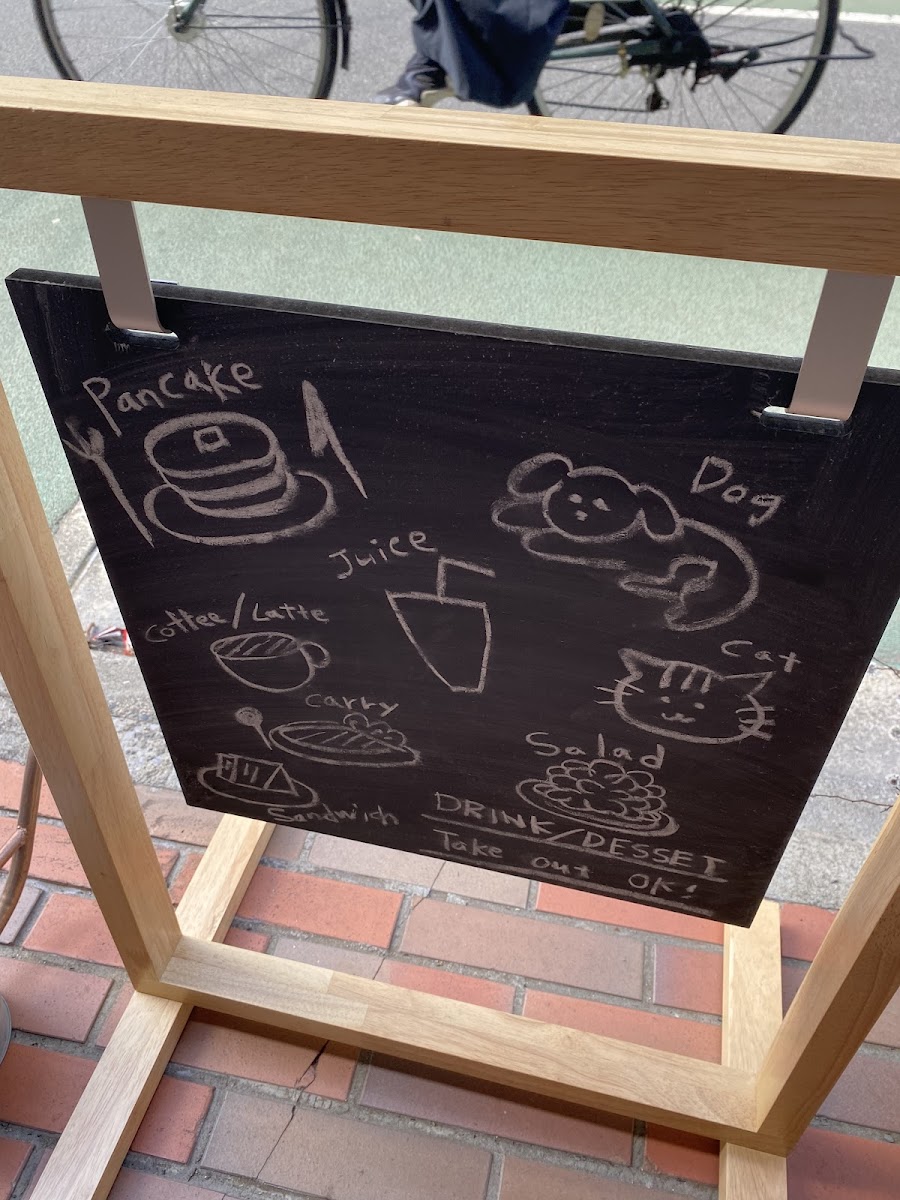 Pancake
Dog
Juice
Coffee/Latte
Cat
carry
Salad
Sandwich
DRINK/DESSET
Take out OK!